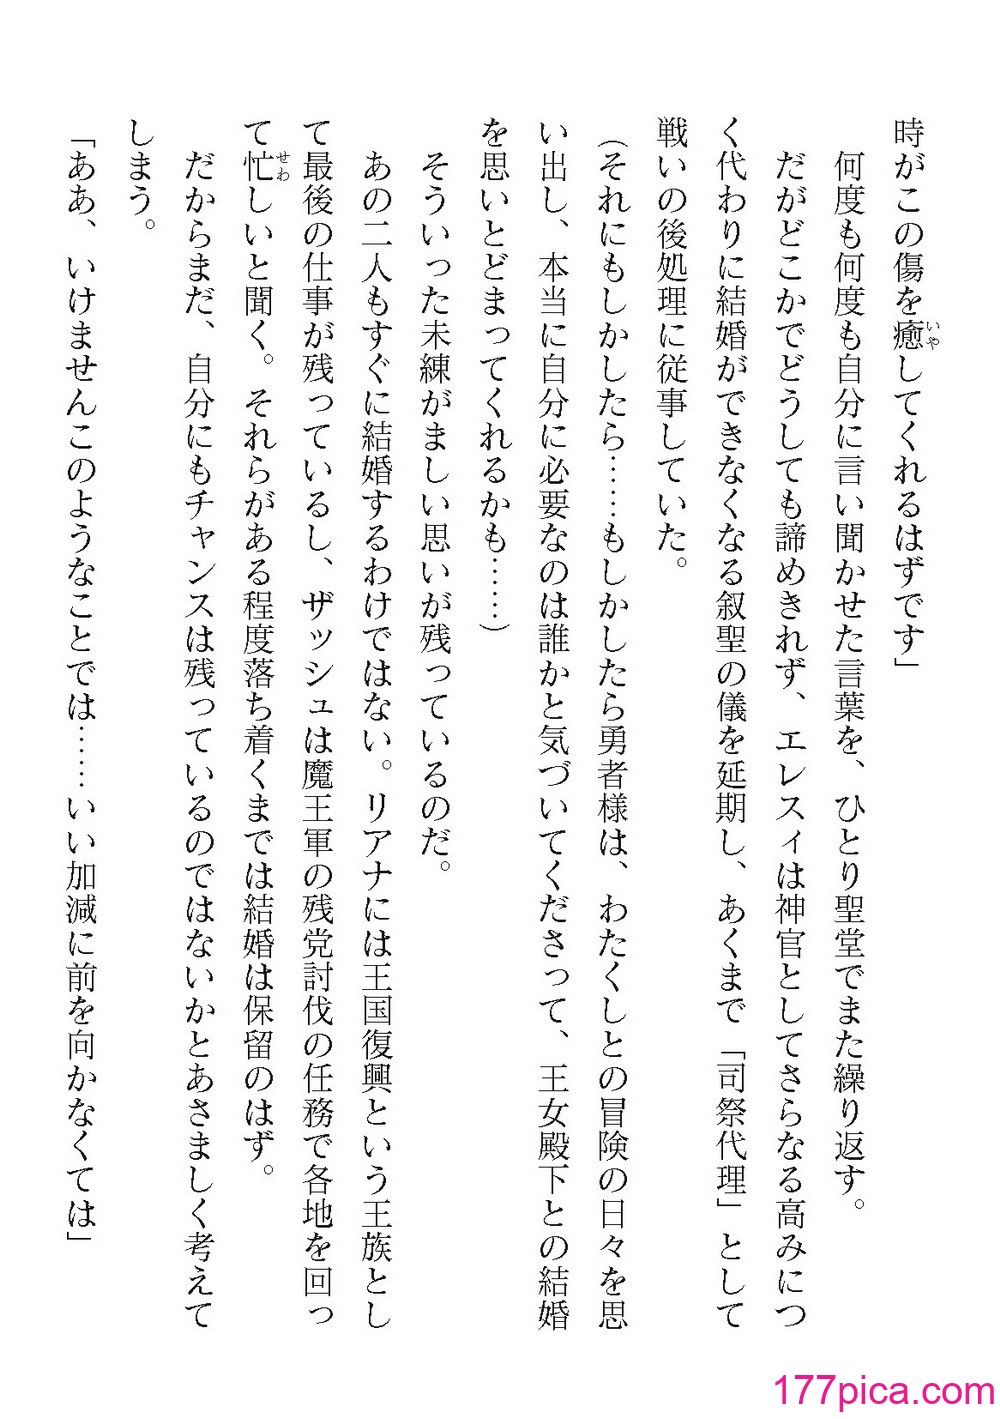 時がこの傷を癒してくれるはずです」
　何度も何度も自分に言い聞かせた言葉を、ひとり聖堂でまた繰り返す。
　だがどこかでどうしても諦めきれず、エレスィは神官としてさらなる高みにつ
く代わりに結婚ができなくなる叙聖の儀を延期し、あくまで「司祭代理」として
戦いの後処理に従事していた。
（それにもしかしたら……もしかしたら勇者様は、わたくしとの冒険の日々を思
い出し、本当に自分に必要なのは誰かと気づいてくださって、王女殿下との結婚
を思いとどまってくれるかも……）
　そういった未練がましい思いが残っているのだ。
　あの二人もすぐに結婚するわけではない。リアナには王国復興という王族とし
て最後の仕事が残っているし、ザッシュは魔王軍の残党討伐の任務で各地を回っ
て忙しいと聞く。それらがある程度落ち着くまでは結婚は保留のはず。
　だからまだ、自分にもチャンスは残っているのではないかとあさましく考えて
しまう。
「ああ、いけませんこのようなことでは……いい加減に前を向かなくては」
いや
せわ
177pica.com